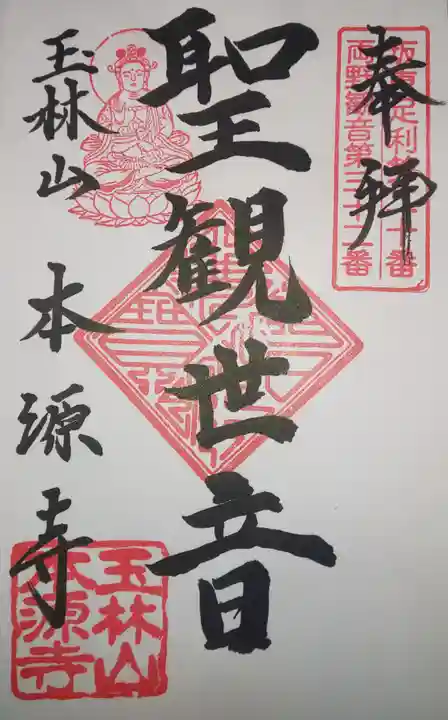 奉拝
両野観音第三十二番
聖観世音
玉林山 本源寺
玉林山
本源寺